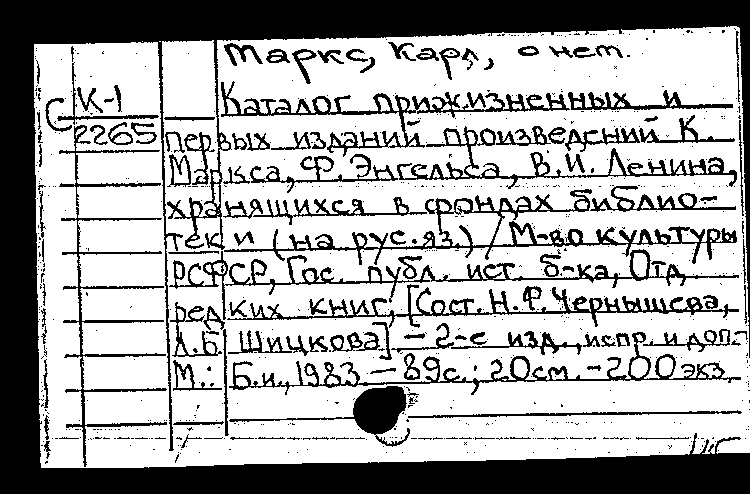 Маркс, Карл, о нем.
С К-1
2265
Каталог прижизненных и
первых изданий произведений К.
Маркса, Ф. Энгельса, В.И. Ленина,
хранящихся в фондах библио-
теки (на рус.яз.) / М-во культуры
РСФСР, Гос. публ. ист. б-ка, Отд.
редких книг, [Сост. Н.Ф. Чернышева,
Л.Б. Шицкова] — 2-е изд., испр. и доп.-
М.: Б.и., 1983. — 89с.; 20см. - 200 экз.